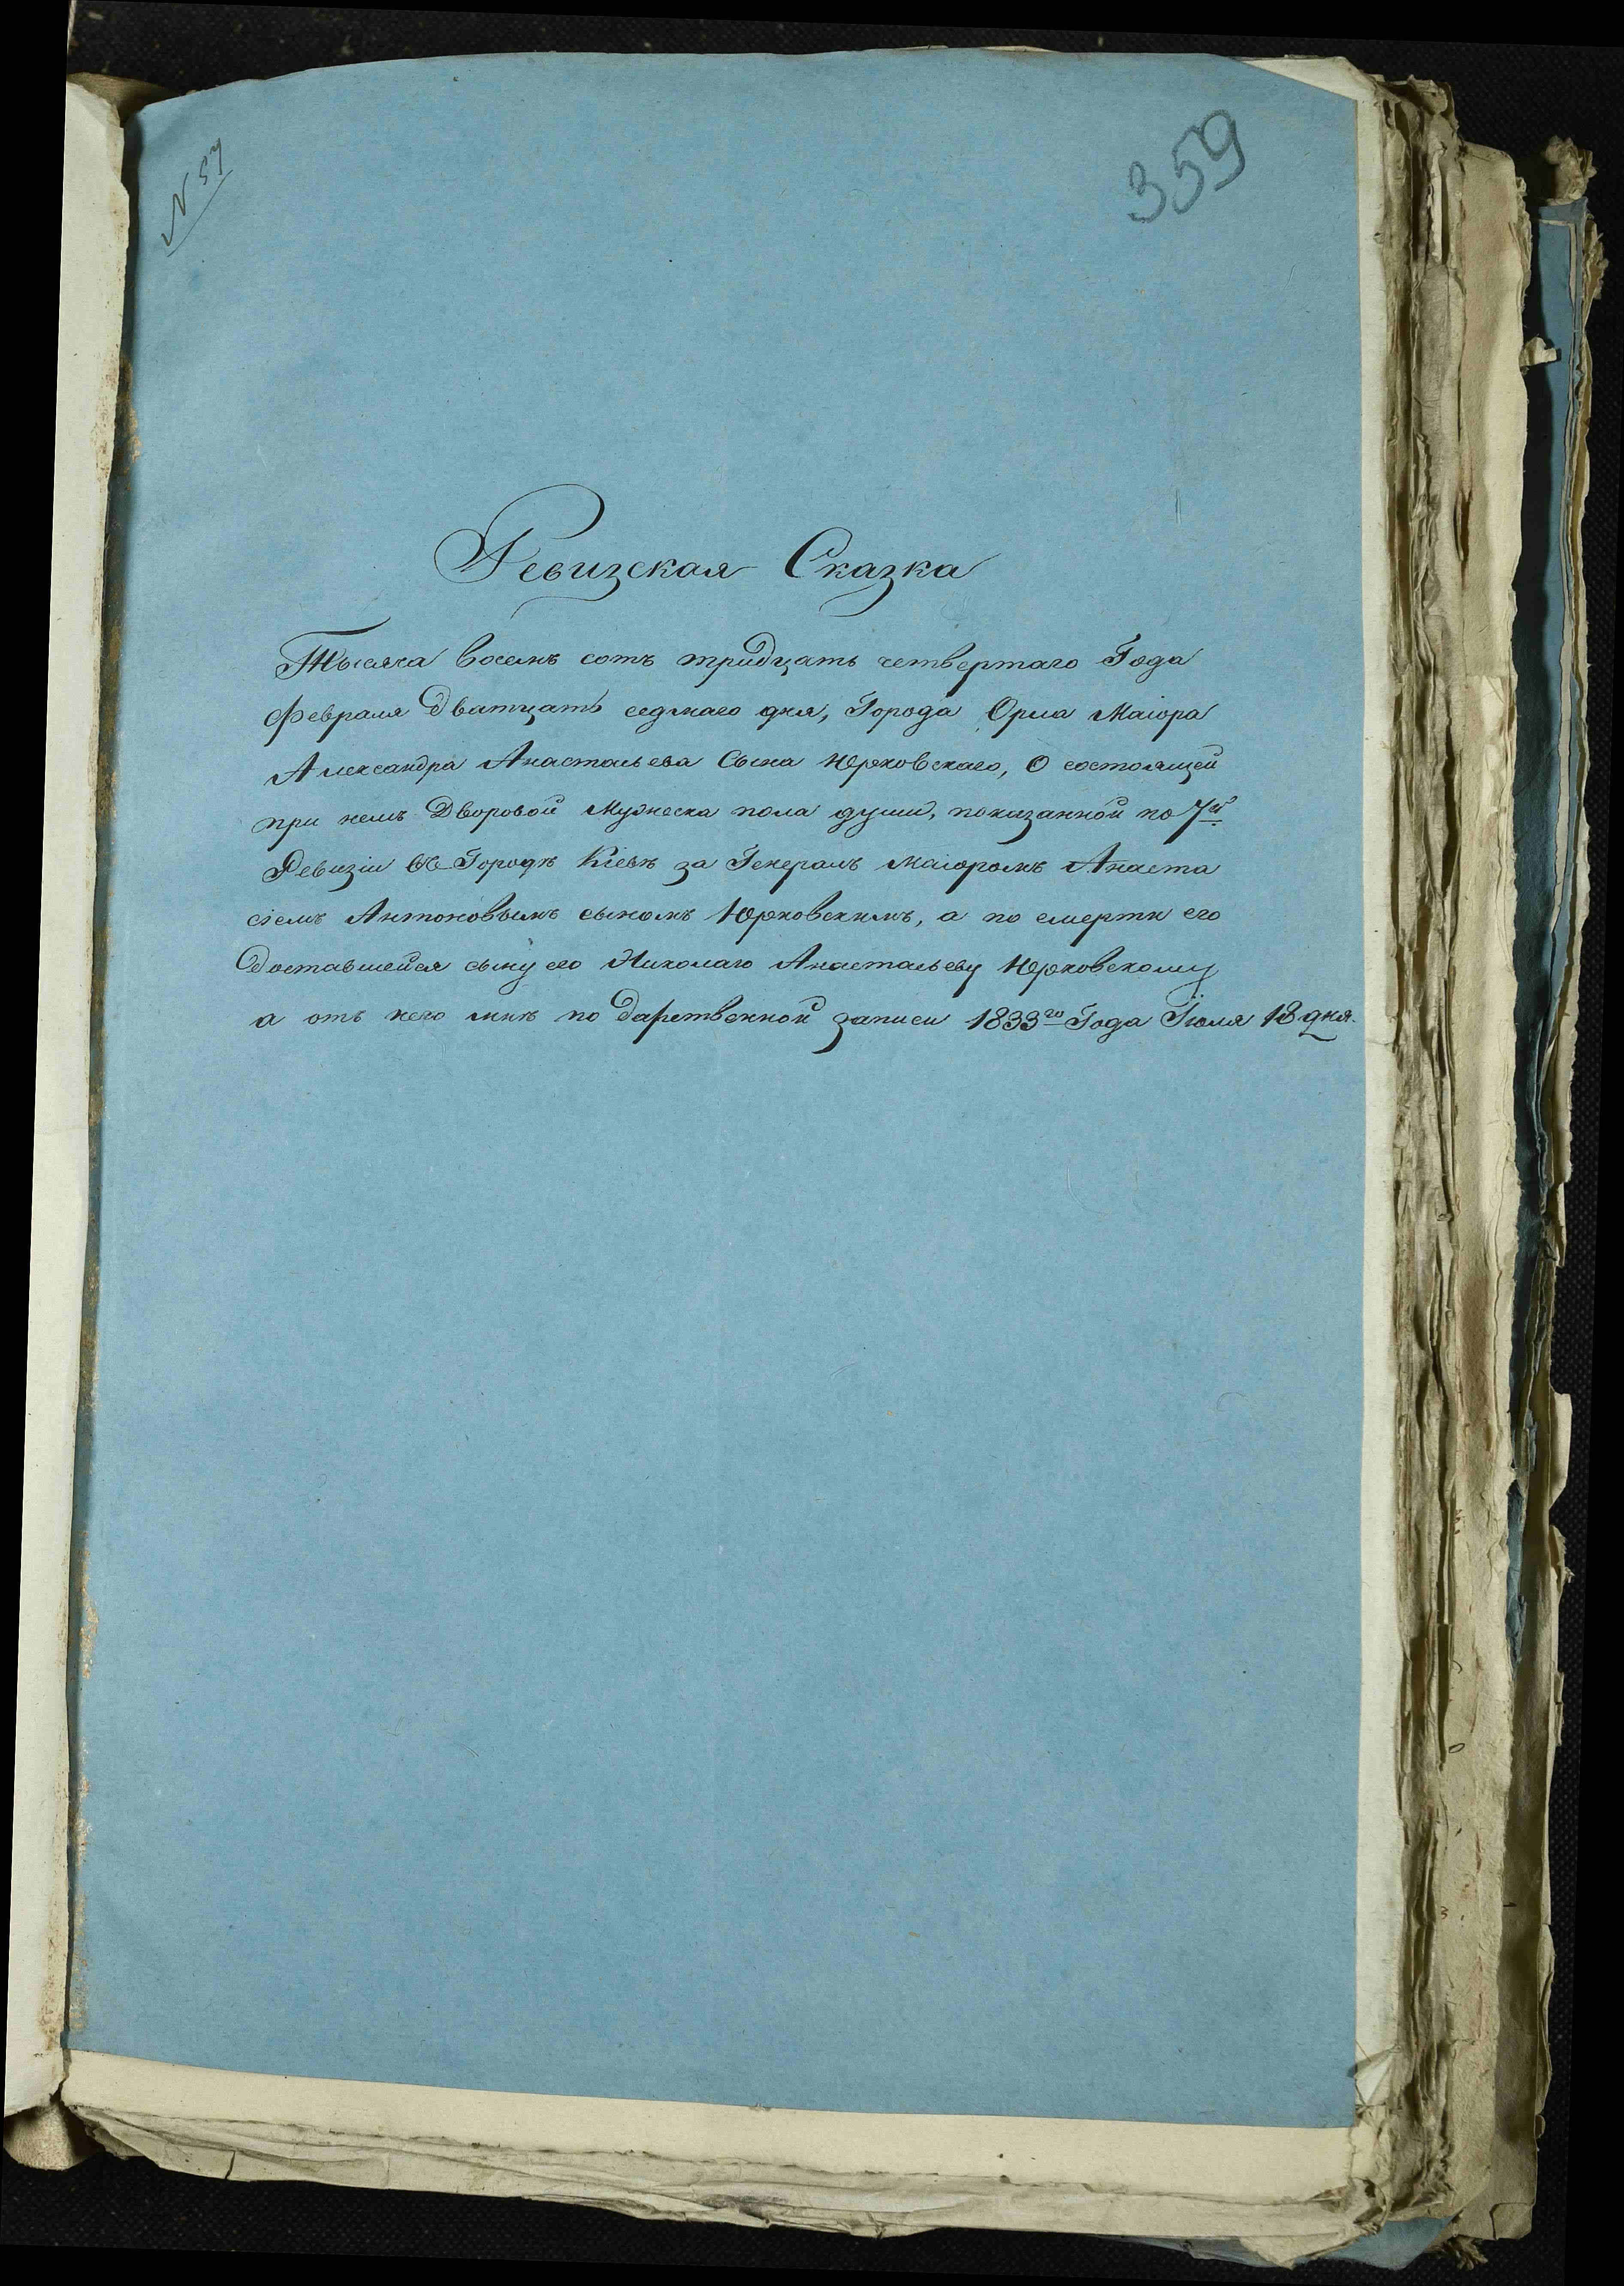 N 57
359
Ревизская Сказка
Тысяча восемь сотъ тридцать четвертаго Года
Февраля Дватцать седмаго дня, Города Орла Маіора
Александра Анастасьева Сына Юрковскаго, О состоящей
при немъ Дворовой Мужеска пола души, показанной по 7й
Ревизіи въ Городѣ Кіевѣ за Генералъ Маіоромъ Анаста
сіемъ Антоновымъ сыномъ Юрковскимъ, а по смерти его
Доставшейся сыну его Николаю Анастасьеву Юрковскому
а отъ него мнѣ по Дарственной записи 1833го Года Іюля 18 дня.